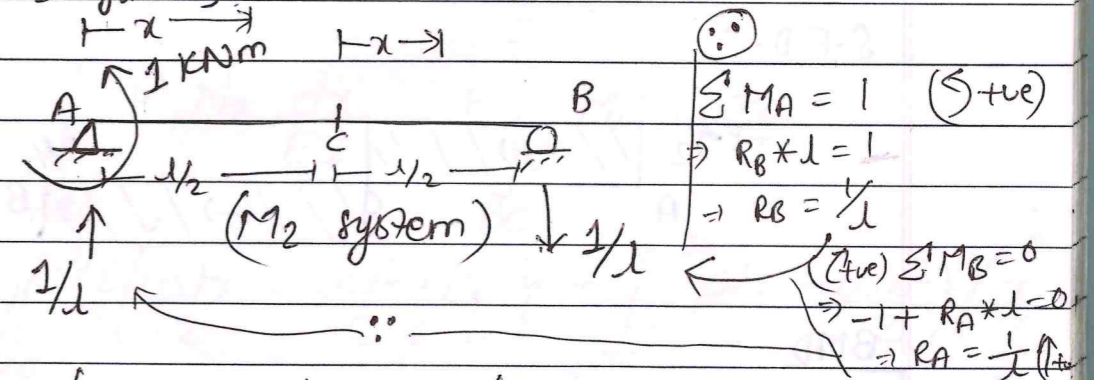 x
x
1 KNm
A
B
C
l/2
l/2
(M2 system)
1/l
1/l
∵
ΣMA = 1 (↺ +ve)
⇒ RB * l = 1
⇒ RB = 1/l
(+ve) ΣMB = 0
⇒ -1 + RA * l = 0
⇒ RA = 1/l
∵